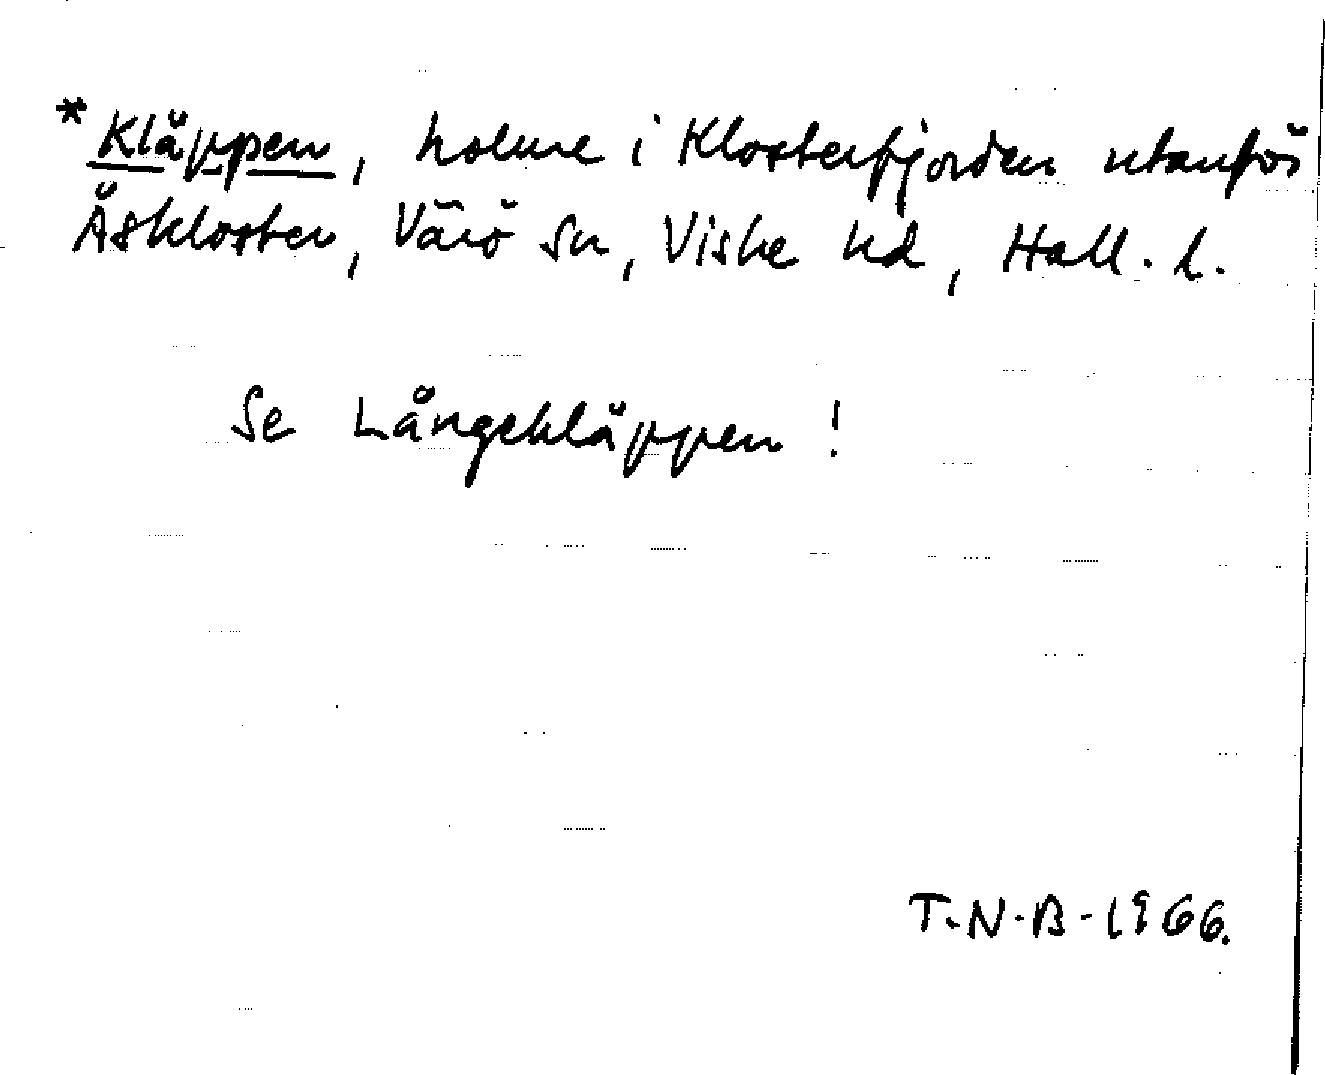 *Kläppen, holme i Klosterfjorden utanför
Åskloster, Värö sn, Viske hd, Hall. l.
Se Långekläppen!
T.N.B. 1966.